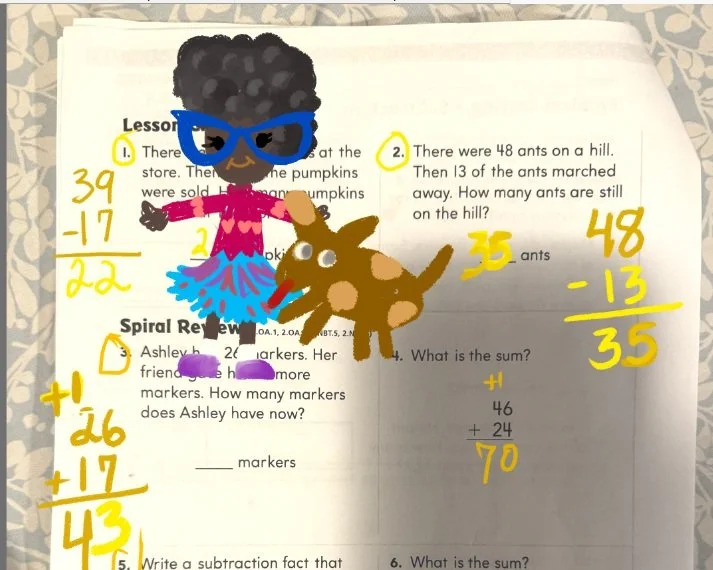 Lesson
1. There at the
39
-17
22
store. Then the pumpkins
were sold. H many pumpkins
2
2. There were 48 ants on a hill.
Then 13 of the ants marched
away. How many ants are still
on the hill?
35 ants
48
- 13
35
Spiral Review
3. Ashley h 26 markers. Her
friend more
markers. How many markers
does Ashley have now?
markers
+1
26
+17
43
4. What is the sum?
+1
46
+ 24
70
5. Write a subtraction fact that
6. What is the sum?